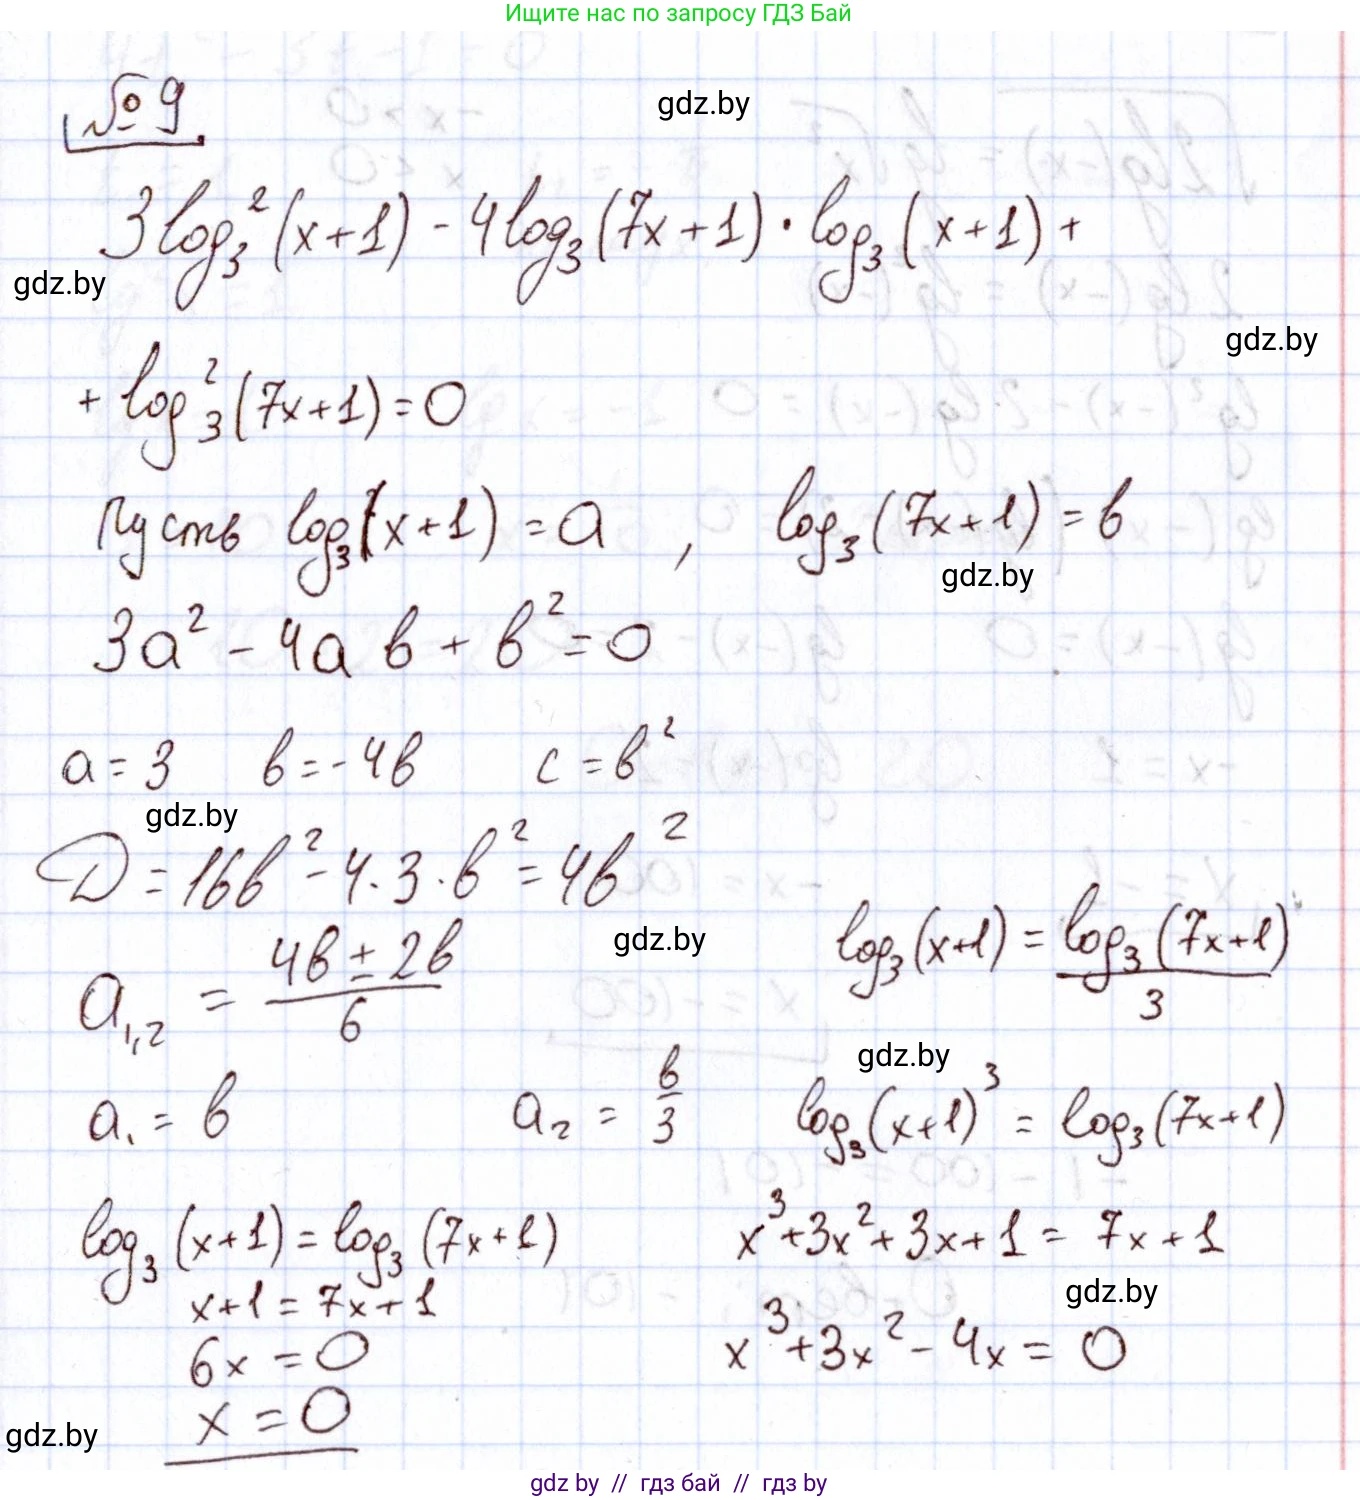 Ищите нас по запросу ГДЗ Бай
№ 9
gdz.by
3log₃²(x+1) - 4log₃(7x+1) · log₃(x+1) +
gdz.by
gdz.by
+ log₃²(7x+1) = 0
Пусть log₃(x+1) = a , log₃(7x+1) = b
gdz.by
3a² - 4ab + b² = 0
a = 3 b = -4b c = b²
gdz.by
D = 16b² - 4·3·b² = 4b²
gdz.by
a₁,₂ = (4b ± 2b)/6
log₃(x+1) = log₃(7x+1)/3
gdz.by
a₁ = b a₂ = b/3
log₃(x+1)³ = log₃(7x+1)
log₃(x+1) = log₃(7x+1)
x³+3x²+3x+1 = 7x+1
x+1 = 7x+1
gdz.by
6x = 0
x³+3x²-4x = 0
x = 0
gdz.by
gdz by // гдз бай // гдз by